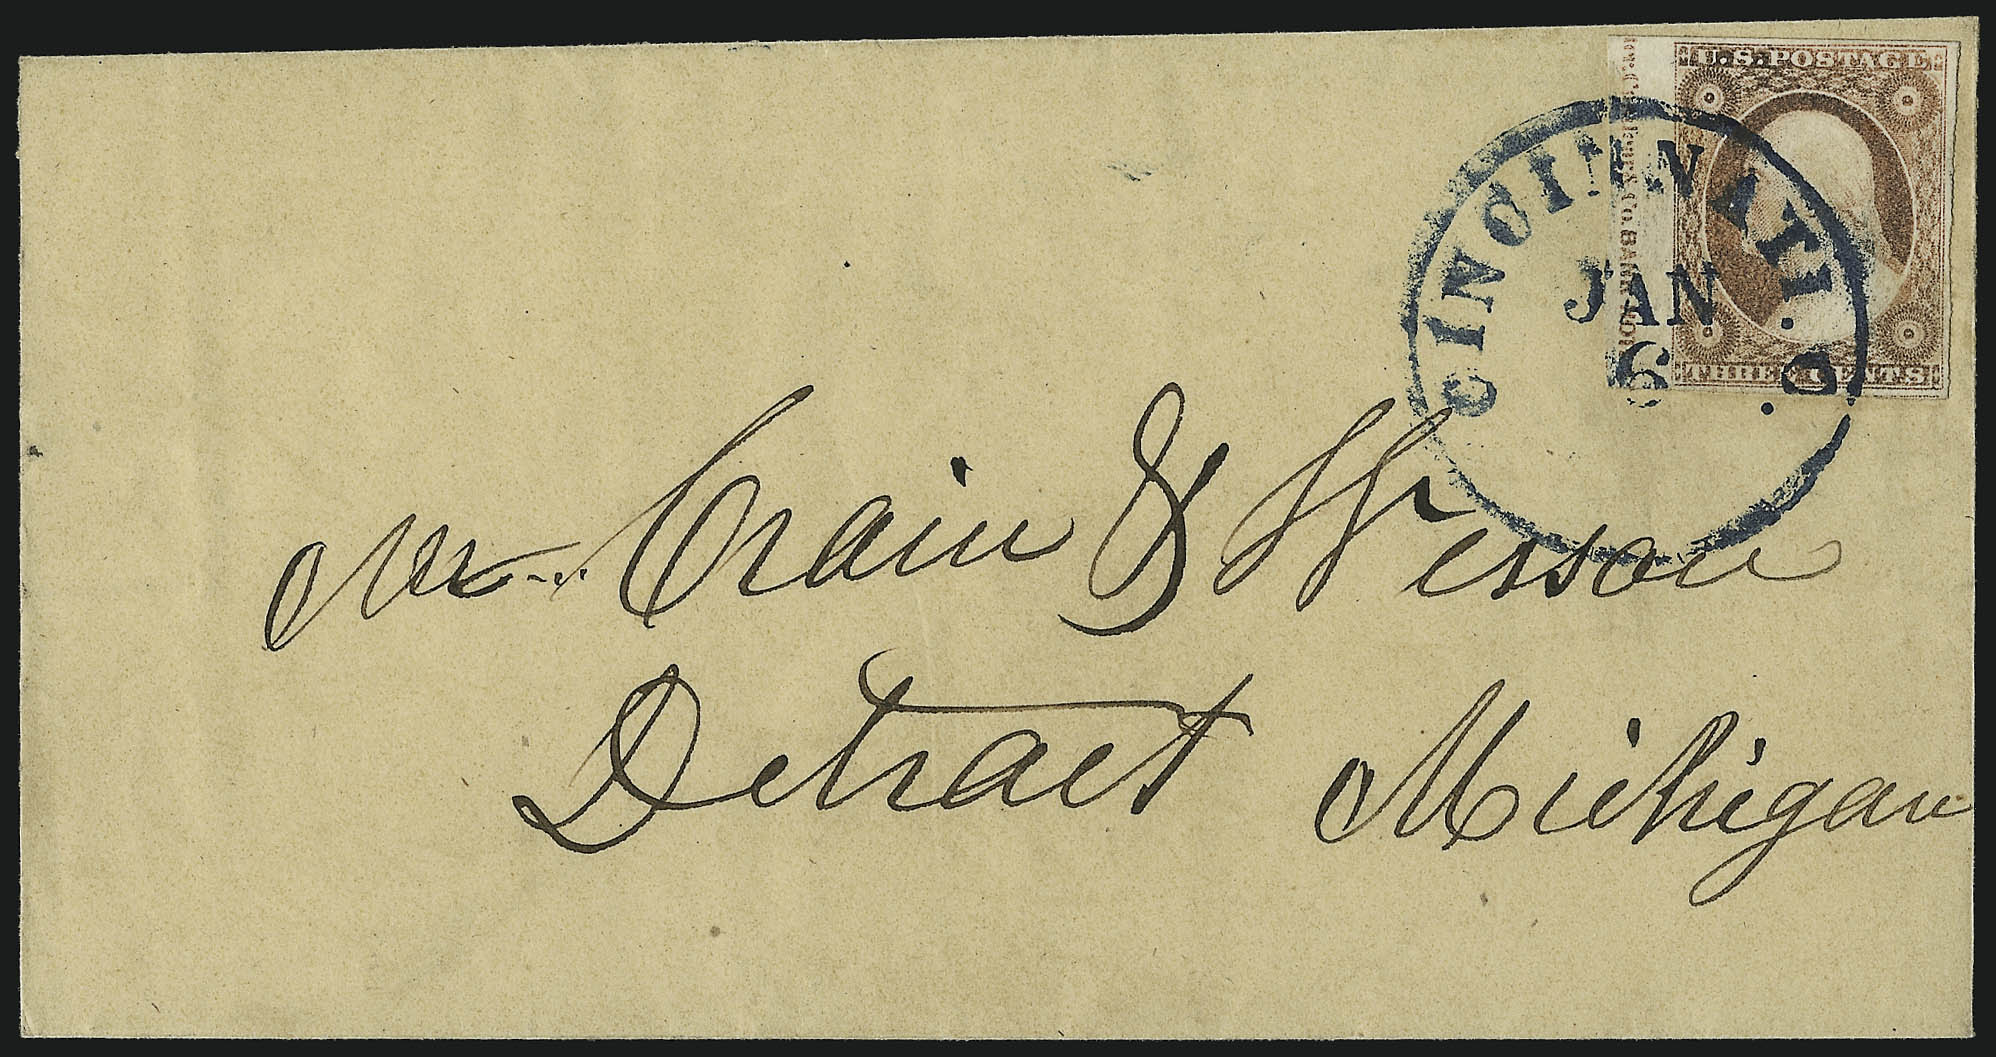 U.S. POSTAGE
THREE CENTS
CINCINNATI. O.
JAN
6
Mr Crain & Wesson
Detroit Michigan